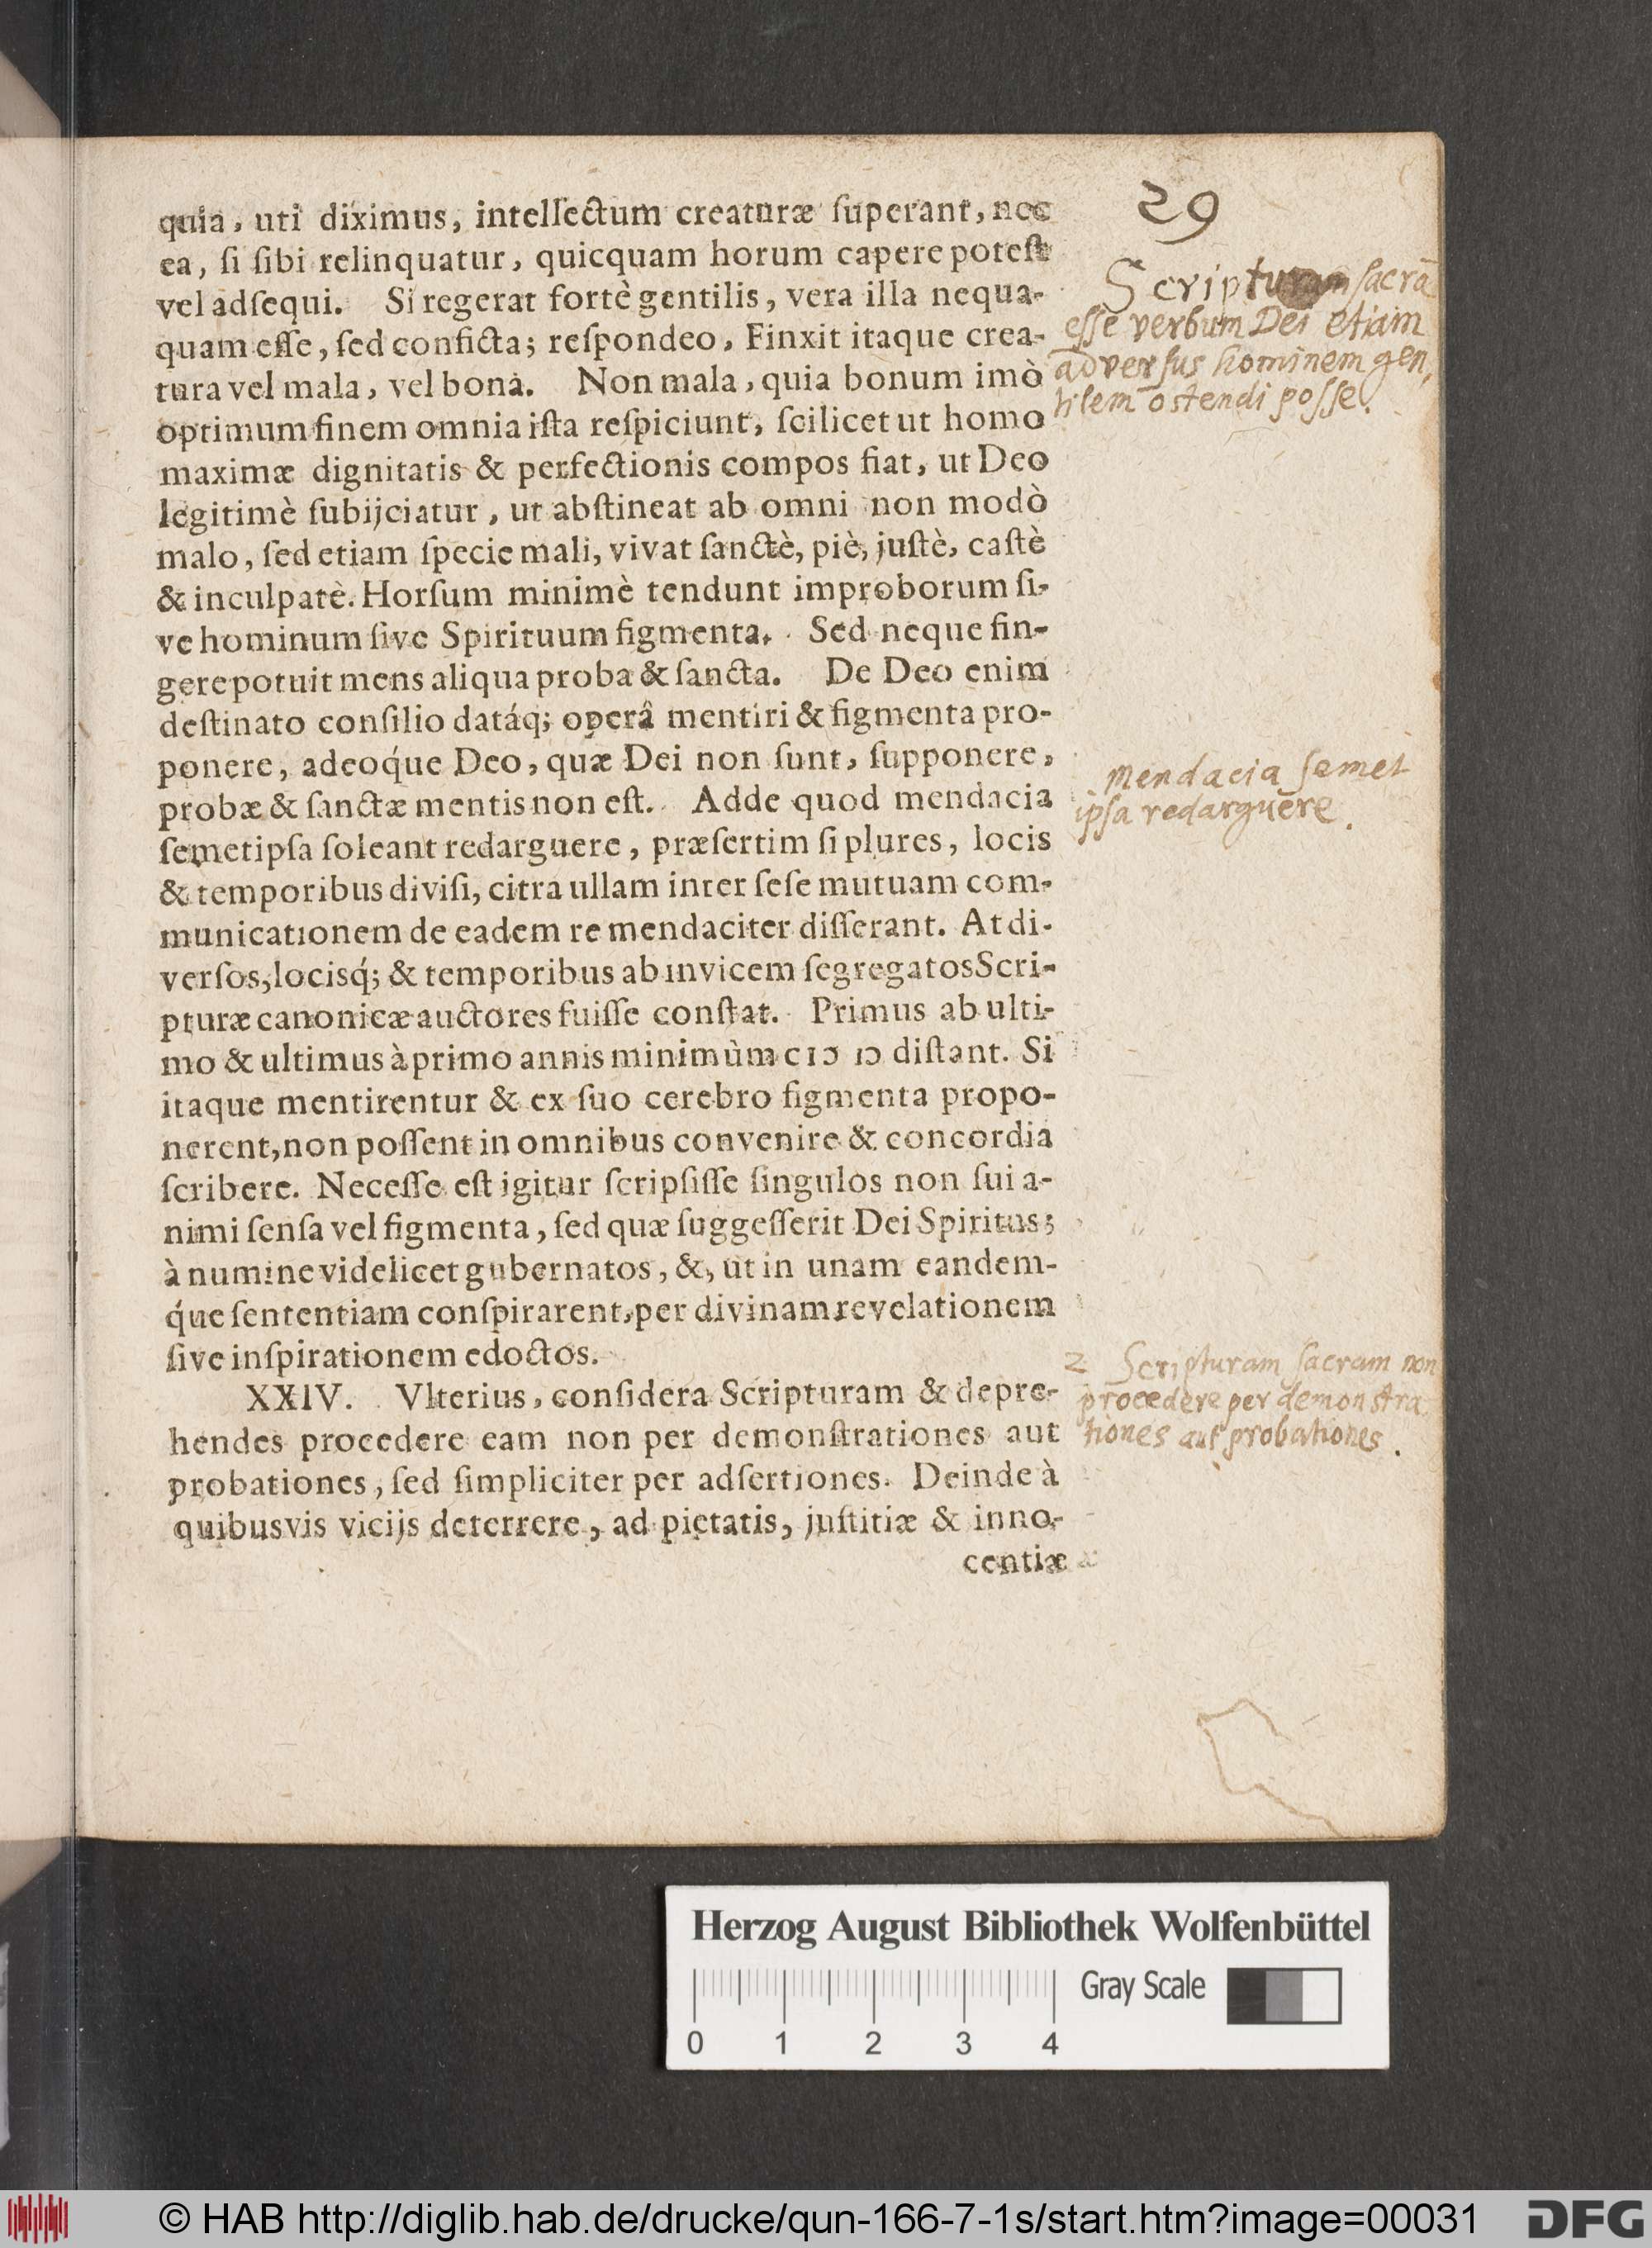 29
quia, uti diximus, intellectum creaturæ ſuperant, nec
ea, ſi ſibi relinquatur, quicquam horum capere poteſt
vel adſequi. Si regerat fortè gentilis, vera illa nequa-
quam eſſe, ſed conficta; reſpondeo, Finxit itaque crea-
tura vel mala, vel bona. Non mala, quia bonum imò
optimum finem omnia iſta reſpiciunt, ſcilicet ut homo
maximæ dignitatis & perfectionis compos fiat, ut Deo
legitimè ſubijciatur, ut abſtineat ab omni non modò
malo, ſed etiam ſpecie mali, vivat ſanctè, piè, juſtè, caſtè
& inculpatè. Horſum minimè tendunt improborum ſi-
ve hominum ſive Spirituum figmenta. Sed neque fin-
gere potuit mens aliqua proba & ſancta. De Deo enim
deſtinato conſilio datáq; operâ mentiri & figmenta pro-
ponere, adeoq́ue Deo, quæ Dei non ſunt, ſupponere,
probæ & ſanctæ mentis non eſt. Adde quod mendacia
ſemetipſa ſoleant redarguere, præſertim ſi plures, locis
& temporibus diviſi, citra ullam inter ſeſe mutuam com-
municationem de eadem re mendaciter diſſerant. At di-
verſos, locisq́; & temporibus ab invicem ſegregatos Scri-
pturæ canonicæ auctores fuiſſe conſtat. Primus ab ulti-
mo & ultimus à primo annis minimùm cIↄ Iↄ diſtant. Si
itaque mentirentur & ex ſuo cerebro figmenta propo-
nerent, non poſſent in omnibus convenire & concordia
ſcribere. Neceſſe eſt igitur ſcripſiſſe ſingulos non ſui a-
nimi ſenſa vel figmenta, ſed quæ ſuggeſſerit Dei Spiritus;
à numine videlicet gubernatos, &, ut in unam eandem-
q́ue ſententiam conſpirarent, per divinam revelationem
ſive inſpirationem edoctos.
XXIV. Vlterius, conſidera Scripturam & depre-
hendes procedere eam non per demonſtrationes aut
probationes, ſed ſimpliciter per adſertiones. Deinde à
quibusvis vicijs deterrere, ad pietatis, juſtitiæ & inno-
centiæ
Scripturam ſacrā
eſſe verbum Dei etiam
adverſus hominem gen,
tilem oſtendi poſſe.
Mendacia ſemet
ipſa redarguere.
2 Scripturam ſacram non
procedere per demonſtra
tiones aut probationes.
Herzog August Bibliothek Wolfenbüttel
Gray Scale
0 1 2 3 4
© HAB http://diglib.hab.de/drucke/qun-166-7-1s/start.htm?image=00031
DFG